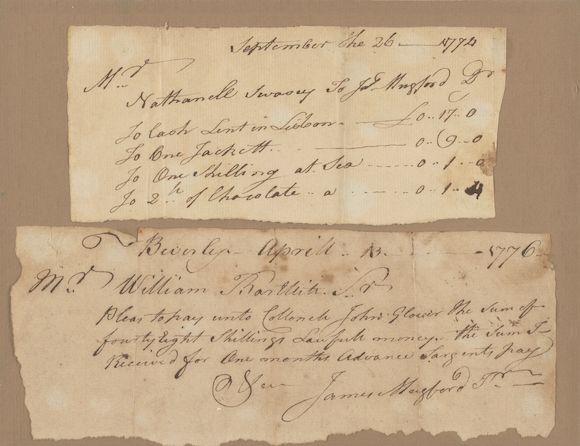 September the 26 — 1774
Mr
Nathanell Swasey To Jas Mugford Dr
To Cash Lent in Lisbon — £0..17..0
To One Jackett .. — 0..9..0
To One Shilling at Sea — 0..1..0
To 2 lb of Chocolate .. a — 0..1..4
Beverly — Aprill .. 13 — 1776
Mr William Bartlitt Sr
Pleas to pay unto Collonel John Glover the Sum of
fourty Eight Shillings Lawfull money the Sum I
Received for One months Advance Sargents pay
James Mugford Jr